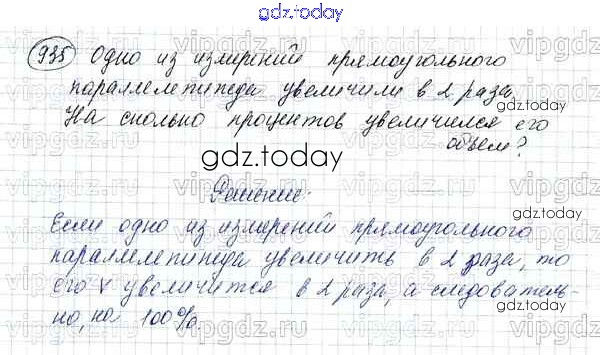 gdz.today
935 Одно из измерений прямоугольного
параллелепипеда увеличили в 2 раза.
На сколько процентов увеличился его
объем?
gdz.today
gdz.today
Решение:
Если одно из измерений прямоугольного
gdz.today
параллелепипеда увеличить в 2 раза, то
его V увеличится в 2 раза, а следователь-
но, на 100%.
gdz.today